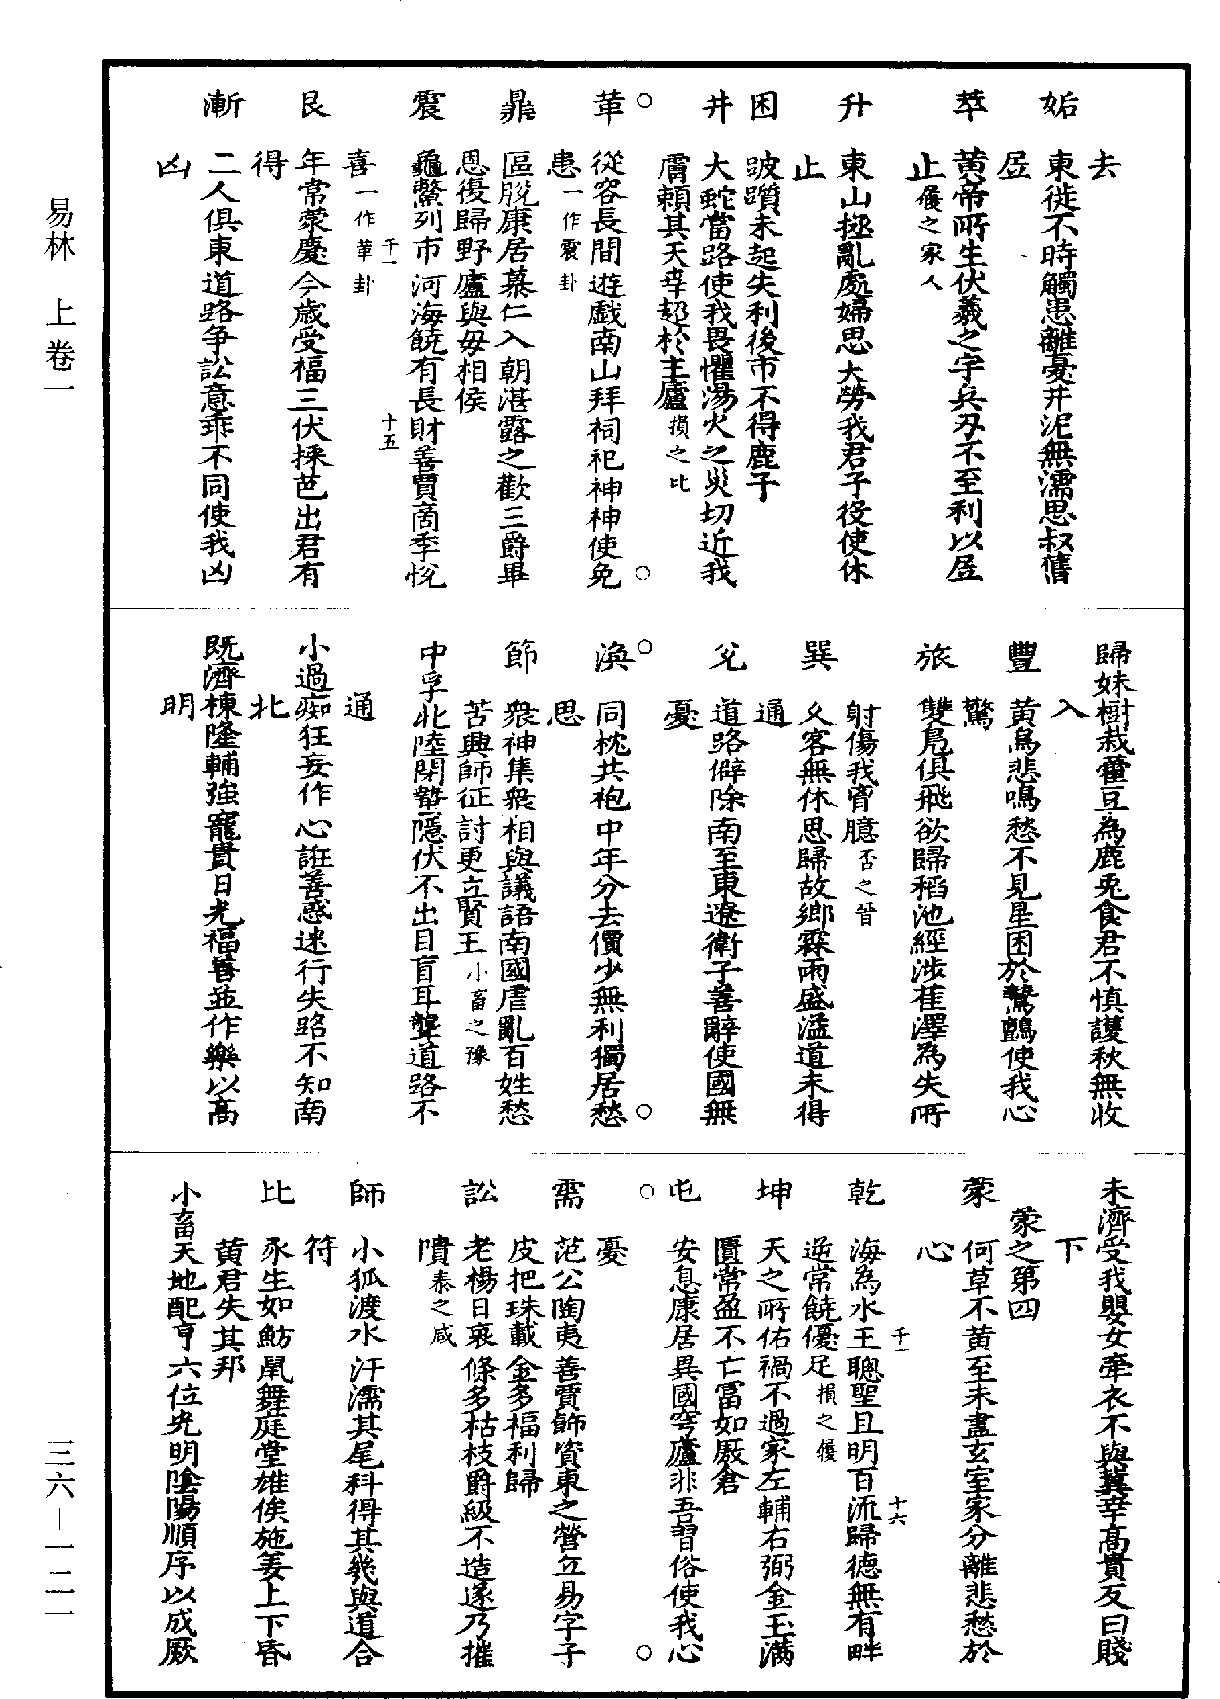 去
姤　東徙不時觸患離憂井泥無濡思叔舊
居
萃　黃帝所生伏羲之字兵刃不至利以居
止履之家人
升　東山拯亂處婦思大勞我君子役使休
止
困　跛躓未起失利後市不得鹿子
井　大蛇當路使我畏懼湯火之災切近我
膚賴其天幸趍於王廬損之比
○　○
革　從容長間遊戲南山拜祠祀神神使免
患一作震卦
鼎　區脫康居慕仁入朝湛露之歡三爵畢
恩復歸野廬與母相侯
震　龜鱉列市河海饒有長財善賈商季悅
千一　十五
喜一作革卦
艮　年常蒙慶今歲受福三伏採芑出君有
得
漸　二人俱東道路爭訟意乖不同使我凶
凶
歸妹樹栽藿豆為鹿兎食君不慎護秋無收
入
豐　黃鳥悲鳴愁不見星困於鷙鸇使我心
驚
旅　雙鳧俱飛欲歸稻池經涉萑澤為失所
射傷我胷臆否之晉
巽　久客無休思歸故鄉霖雨盛溢道未得
通
兌　道路僻除南至東遼衛子善辭使國無
憂
○　○
渙　同枕共袍中年分去價少無利獨居愁
思
節　衆神集聚相與議語南國虐亂百姓愁
苦興師征討更立賢王小畜之豫
中孚北陸閉蟄隱伏不出目盲耳聾道路不
通
小過痴狂妄作心誑善惑迷行失路不知南
北
既濟棟隆輔強寵貴日光福善並作樂以高
明
未濟受我嬰女牽衣不與冀幸高貴反曰賤
下
蒙之第四
蒙　何草不黃至未盡玄室家分離悲愁於
心
乾　海為水王聰聖且明百流歸德無有畔
千一　十六
逆常饒優足損之履
坤　天之所佑禍不過家左輔右弼金玉滿
匱常盈不亡富如厫倉
屯　安息康居異國穹廬非吾習俗使我心
○　○
憂
需　范公陶夷善賈飾資東之營丘易字子
皮把珠載金多福利歸
訟　老楊日衰條多枯枝爵級不造遂乃摧
隤泰之咸
師　小狐渡水汗濡其尾科得其幾與道合
符
比　豕生如魴鼠舞庭堂雄侯施姜上下昏
黃君失其邦
小畜天地配亨六位光明陰陽順序以成厥
易林　上卷一
三六—一二一